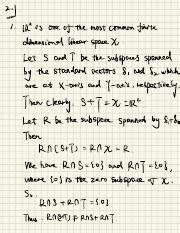 2.)
1. ℝ² is one of the most common finite
dimensional linear space X.
Let S and T be the subspaces spanned
by the standard vectors δ₁ and δ₂, which
are at X-axis and Y-axis, respectively.
Then clearly, S+T = X = ℝ²
Let R be the subspace spanned by δ₁+δ₂
Then
R∩(S+T) = R∩X = R
We have R∩S={0} and R∩T={0},
where {0} is the zero subspace of X.
So
R∩S + R∩T = {0}
Thus R∩(S+T) ≠ R∩S+R∩T.